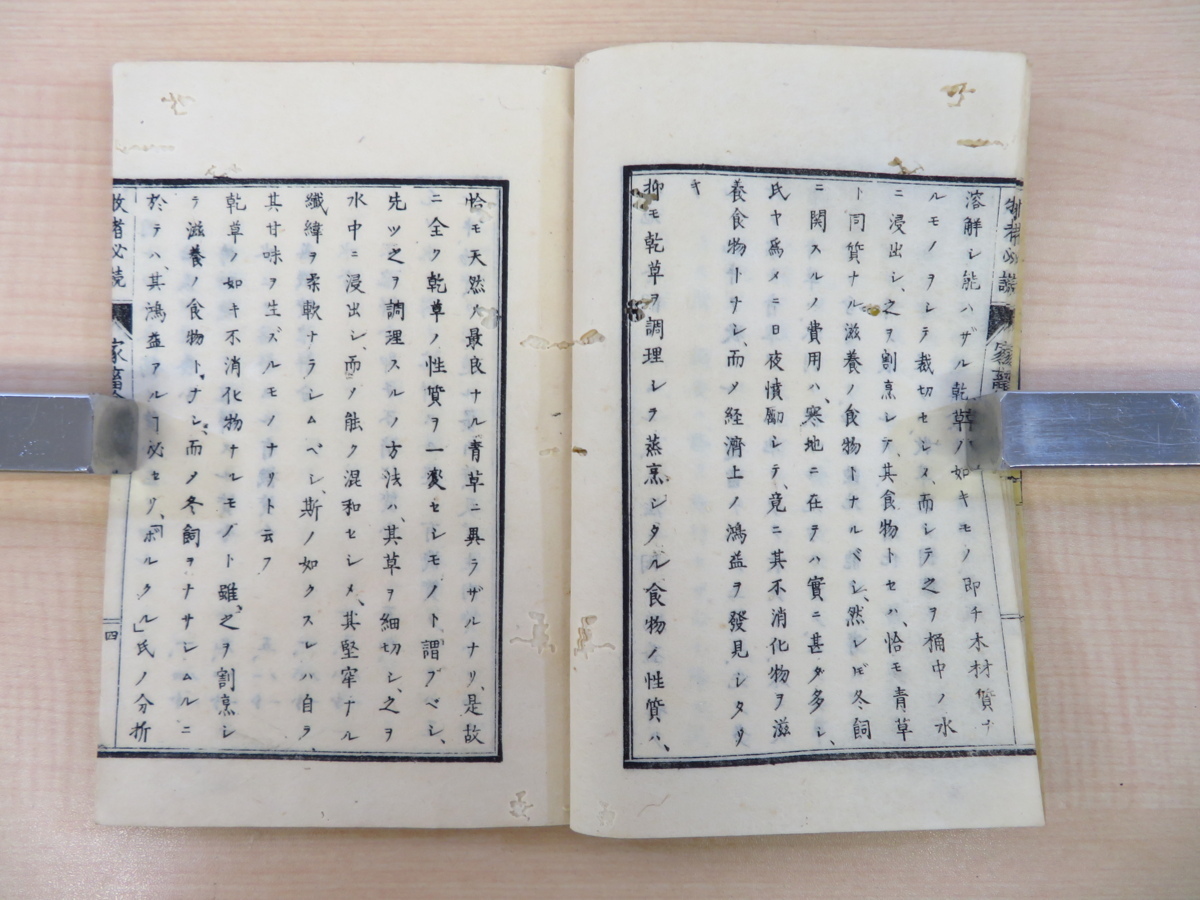 溶解シ能ハザル乾草ノ如キモノ即チ木材質ナ
ルモノヲシテ裁切セシメ、而シテ之ヲ桶中ノ水
ニ浸出シ、之ヲ割烹シテ、其食物トセハ、恰モ青草
ト同質ナル滋養ノ食物トナルベシ、然シㇳ゙モ冬飼
ニ関スルノ費用ハ、寒地ニ在テハ實ニ甚ダ多シ、
氏ヤ為メニ日夜憤勵シテ、竟ニ其不消化物ヲ滋
養食物トナシ、而〆経済上ノ鴻益ヲ發見シタリ
キ
抑モ乾草ヲ調理シテ蒸烹シタル食物ノ性質ハ、
牧者必読
家畜
恰モ天然ノ最良ナル青草ニ異ラザルナリ、是故
ニ全ク乾草ノ性質ヲ一変セシモノト謂フベシ、
先ツ之ヲ調理スルノ方法ハ、其草ヲ細切シ、之ヲ
水中ニ浸出シ、而〆能ク混和セシメ、其堅牢ナル
纖緯ヲ柔軟ナラシムベシ、斯ノ如クスレハ自ラ
其甘味ヲ生ズルモノナリト云フ
乾草ノ如キ不消化物ナルモノト雖、之ヲ割烹シ
ラ滋養ノ食物トナシ、而〆冬飼ヲナサシムルニ
於テハ、其鴻益アルヿ必セリ、「ボルクル」氏ノ分析
牧者必読
家畜
四